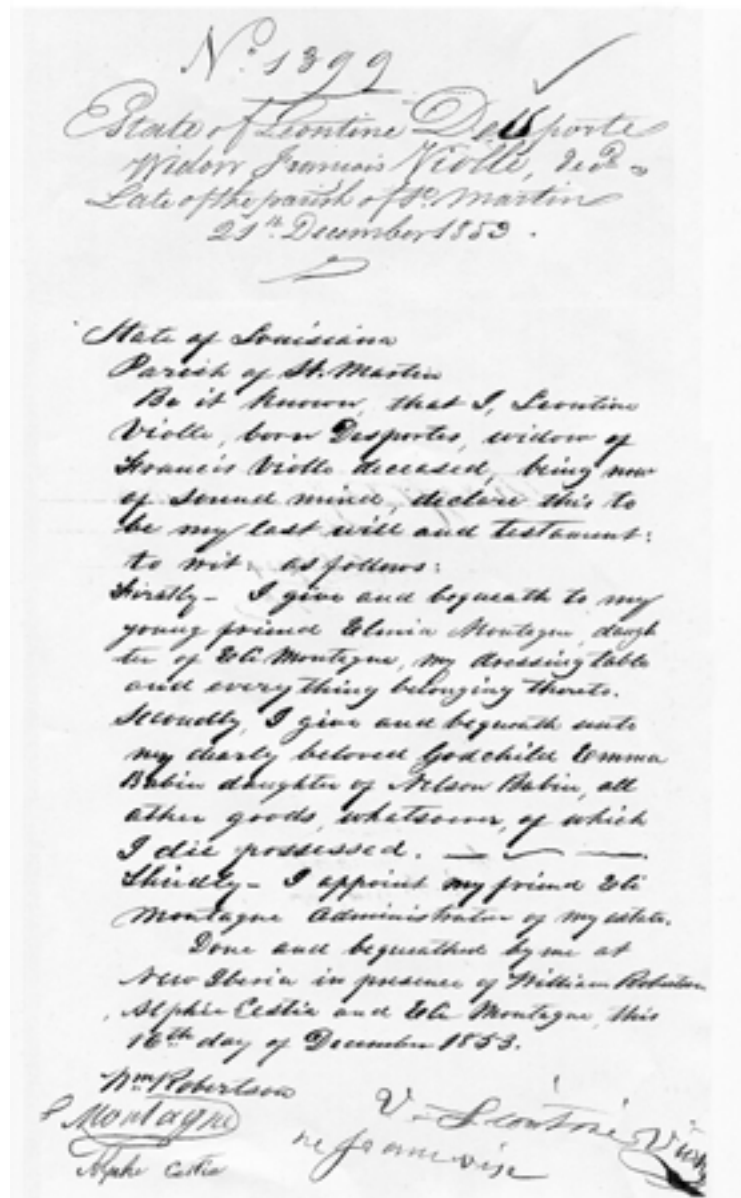 No. 1399
Estate of Leontine Desporte
Widow Francois Violle, decd.
Late of the parish of St. Martin
21st December 1853.
State of Louisiana
Parish of St. Martin
Be it known, that I, Leontine
Violle, born Desportes, widow of
Francis Violle deceased, being now
of sound mind, declare this to
be my last will and testament:
to wit: as follows:
Firstly - I give and bequeath to my
young friend Montegue, daugh
ter of Eli Montegue, my dressing table
and everything belonging thereto.
Secondly, I give and bequeath unto
my dearly beloved Godchild Emma
Babin daughter of Nelson Babin, all
other goods, whatsoever, of which
I die possessed.
Thirdly - I appoint my friend Eli
Montagne Administrator of my estate.
Done and bequeathed by me at
New Iberia in presence of William Robertson
and Eli Montagne, this
16th day of December 1853.
Wm Robertson
Montagne
V. Leontine